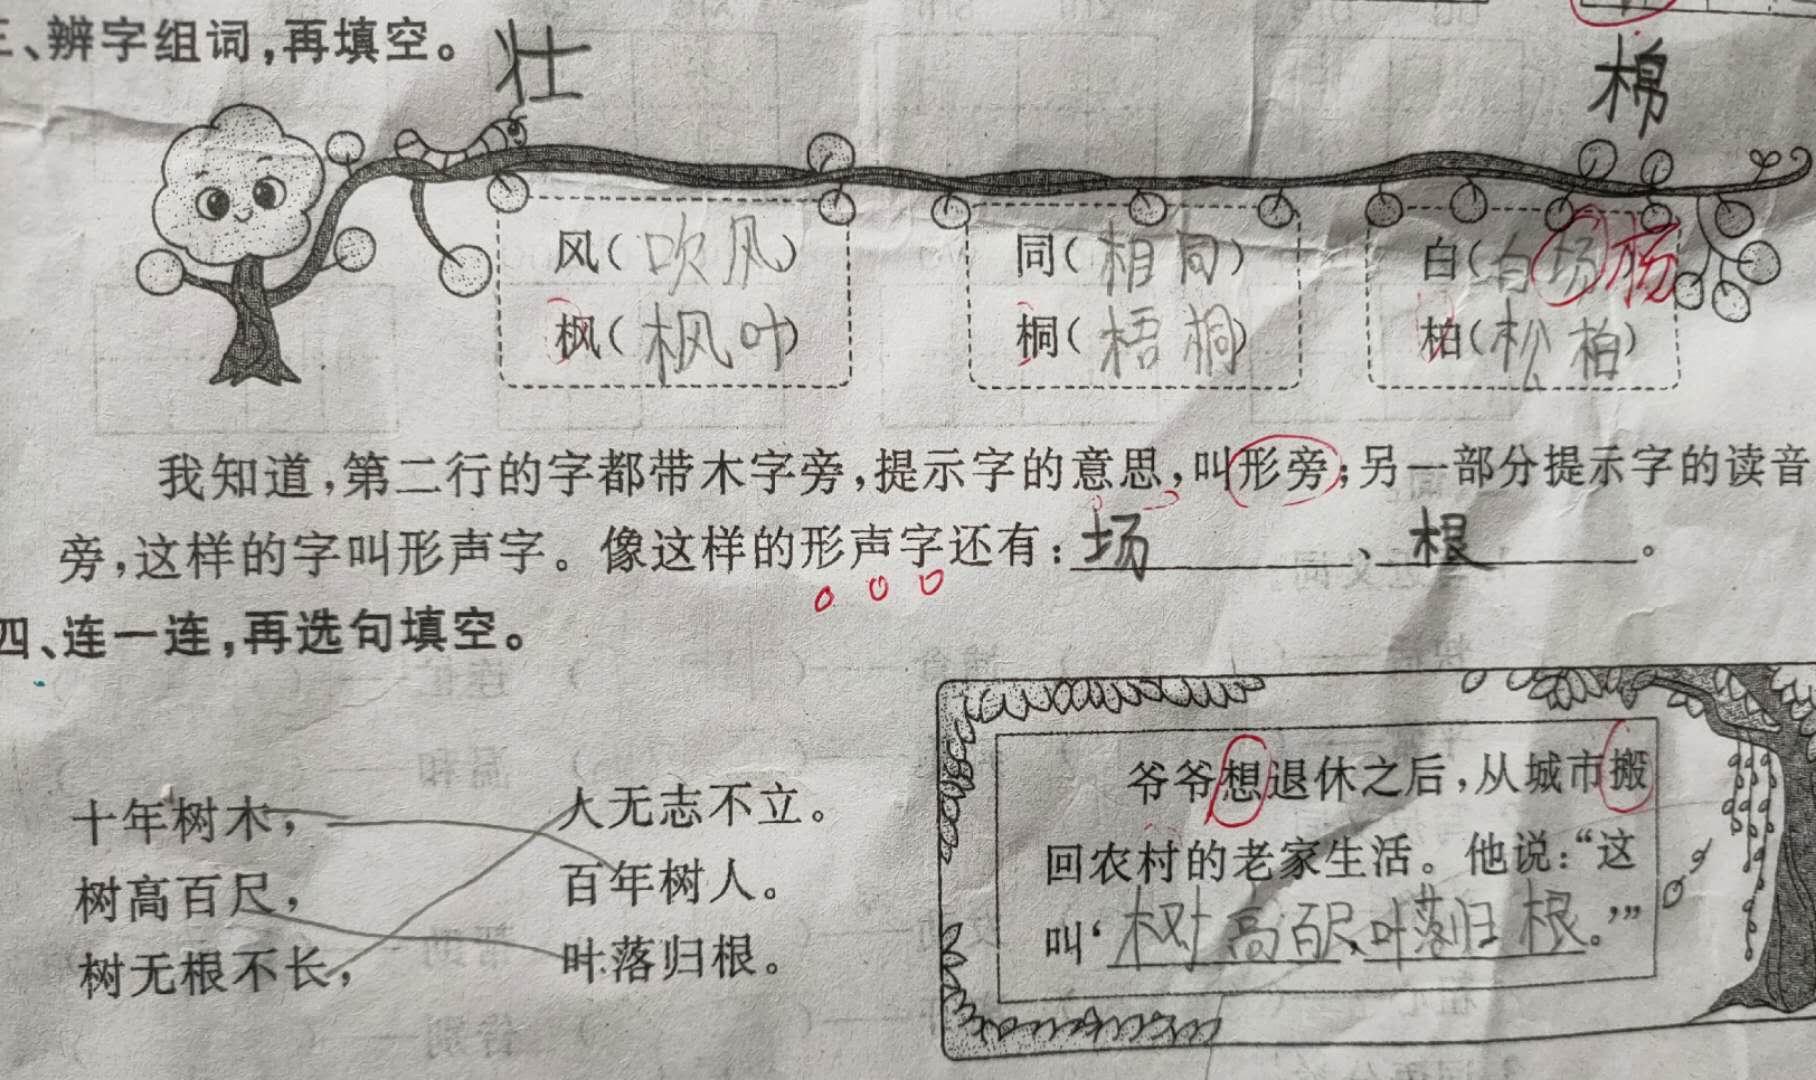 三、辨字组词,再填空。 壮
棉
风(吹风) 同(相同) 白(白场)杨
枫(枫叶) 桐(梧桐) 柏(松柏)
我知道,第二行的字都带木字旁,提示字的意思,叫形旁;另一部分提示字的读音
旁,这样的字叫形声字。像这样的形声字还有:场、根。
四、连一连,再选句填空。
十年树木, 人无志不立。
树高百尺, 百年树人。
树无根不长, 叶落归根。
爷爷想退休之后,从城市搬
回农村的老家生活。他说:“这
叫‘树高百尺,叶落归根。’”